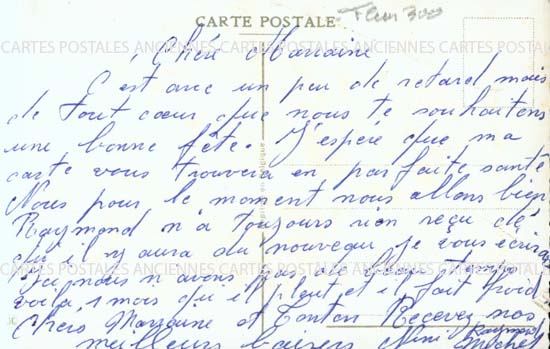 CARTE POSTALE
Fleur 300
Chère Marraine
CARTES POSTALES ANCIENNES CARTES POSTALES ANCIENNES CARTES
C'est avec un peu de retard mais
de tout cœur que nous te souhaitons
une bonne fête. J'espère que ma
carte vous trouvera en parfaite santé
Nous pour le moment nous allons bien
Raymond n'a toujours rien reçu dé
qu'il y aura du nouveau je vous écrirai
Ici nous n'avons pas de beau temps
voilà 1 mois qu'il pleut et il fait froid
Chers Marraine et Tonton Recevez nos
meilleurs baisers Nini Raymond
Michel